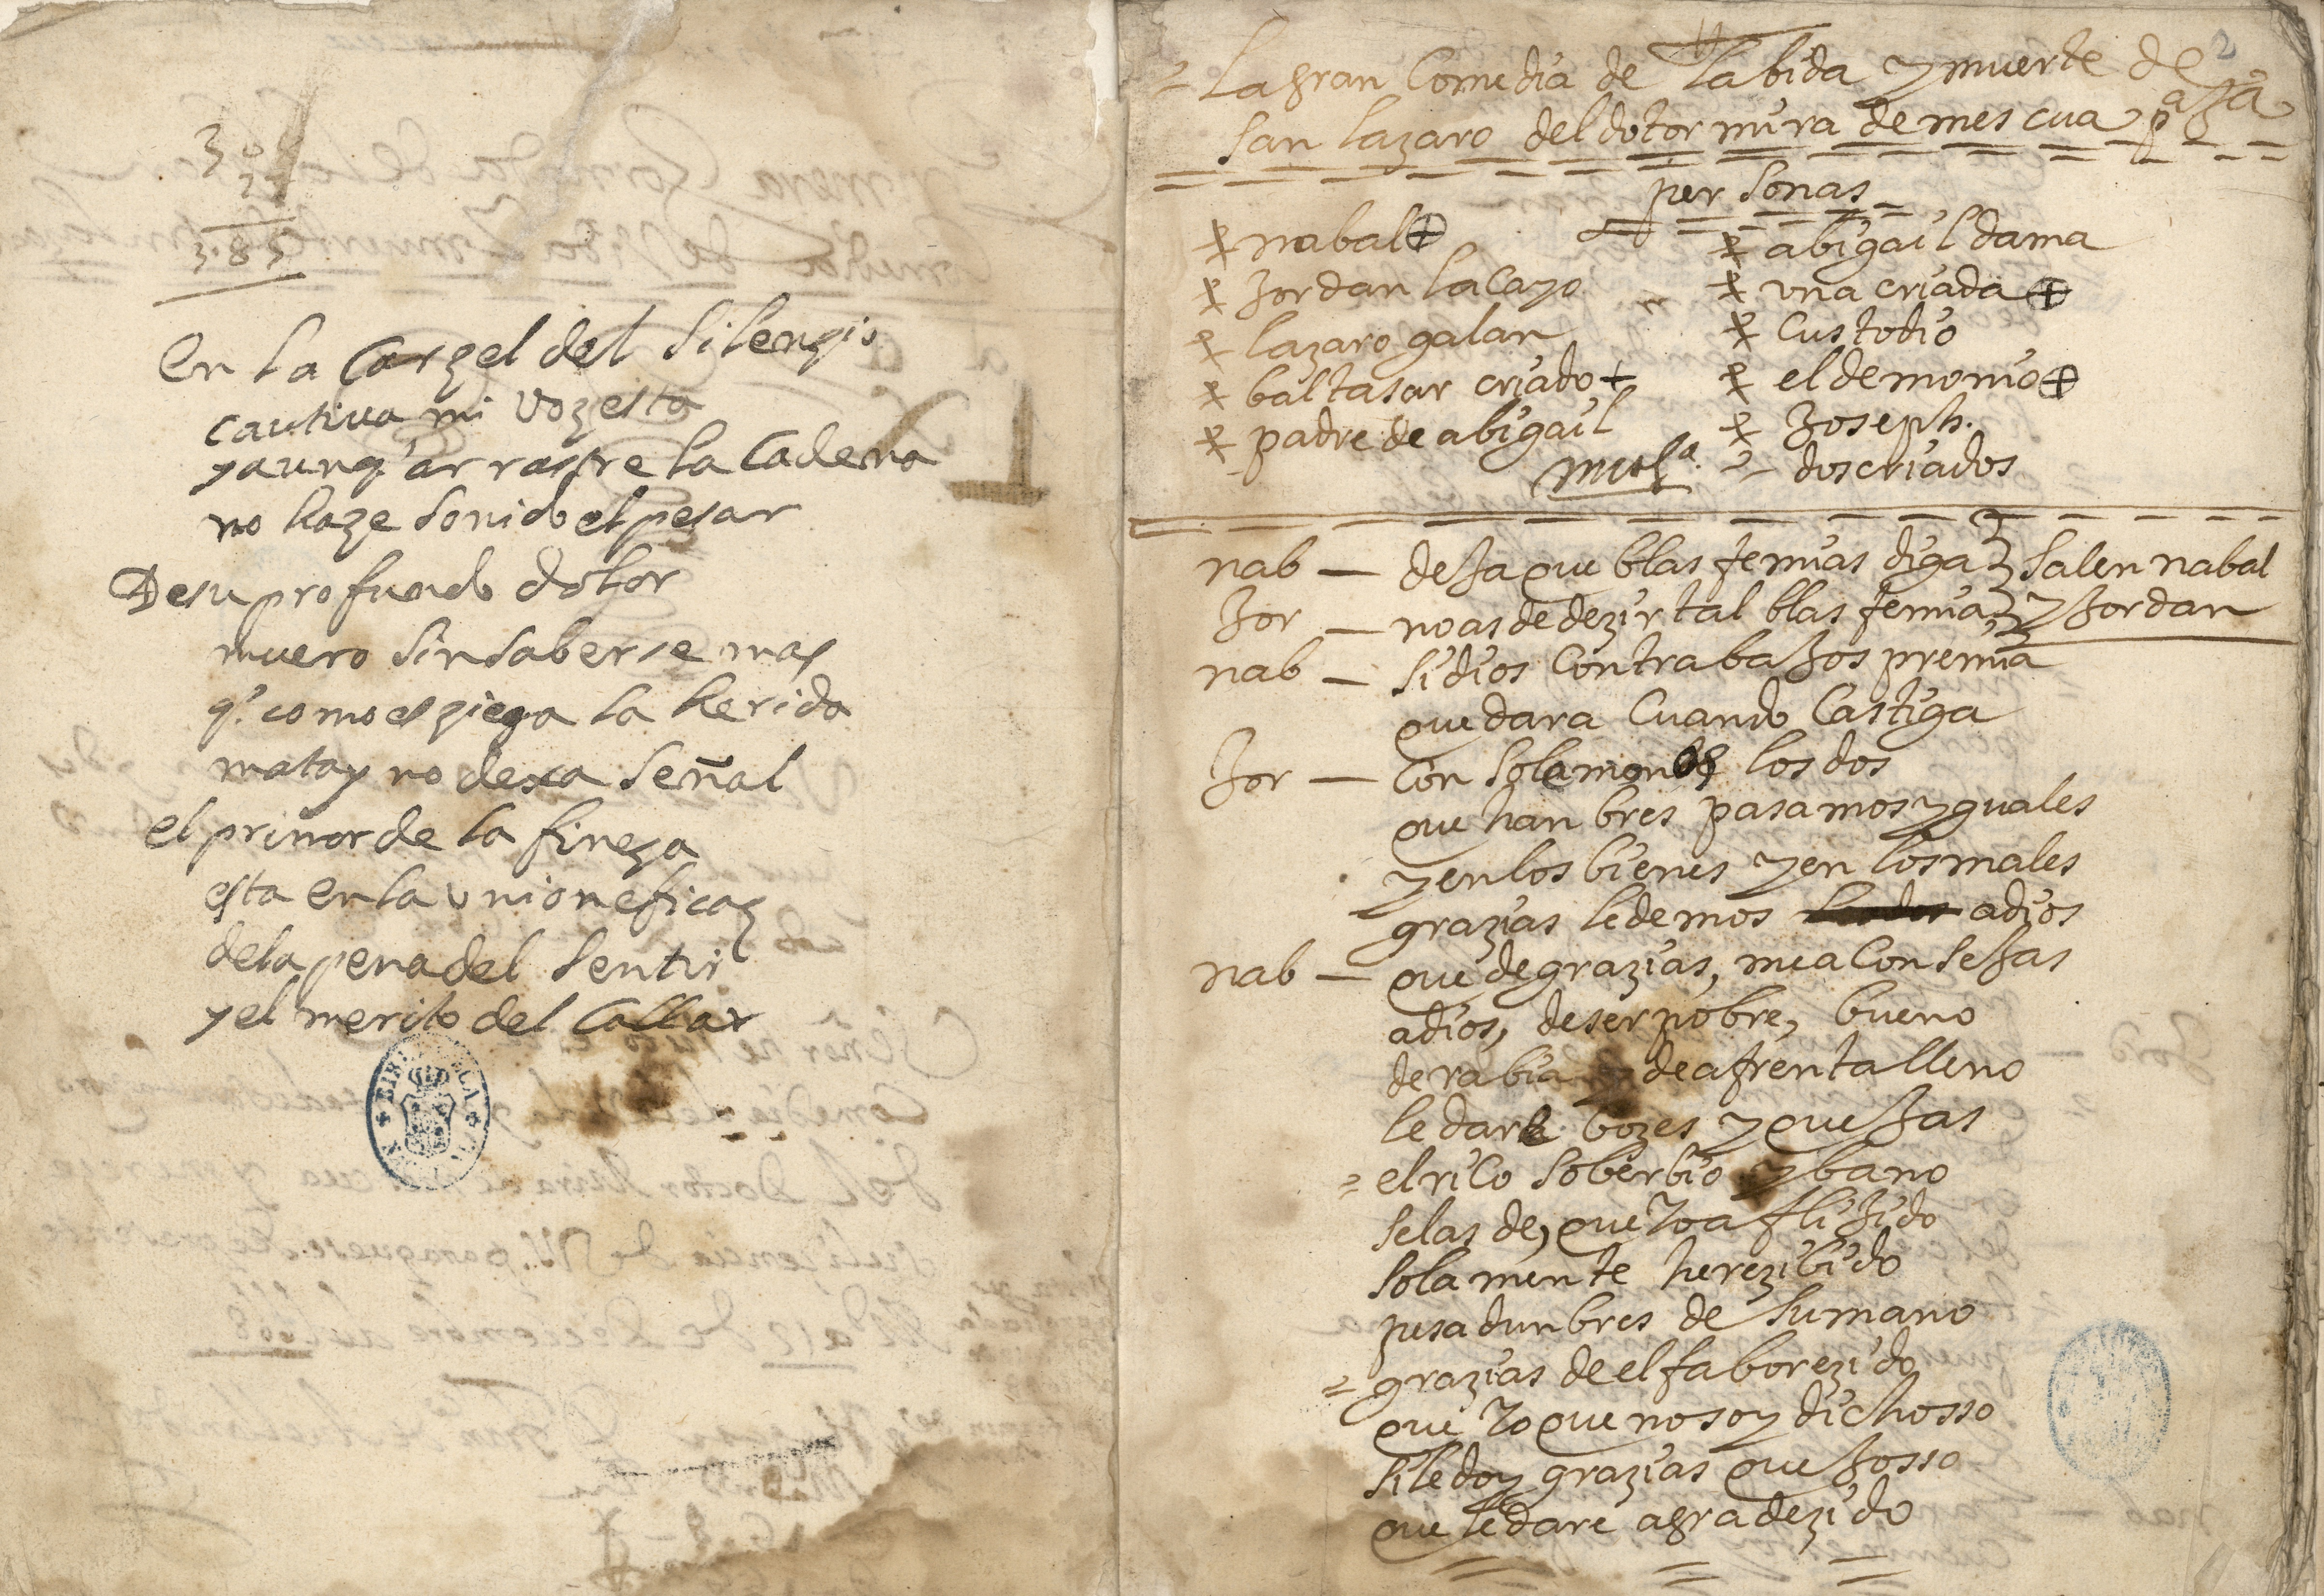 3 8 5
en la Carzel del silenzio
cautiva mi voz esta
y aunq' arrastre la Cadena
no haze sonido el pesar
De su profundo dolor
muero sin saberse mas
q' como es ziega la herida
mata y no dexa señal
el primor de la fineza
esta en la union eficaz
de la pena del sentir
y el merito del Callar
BIBLIOTECA
2
= La gran Comedia de la bida y muerte de
san lazaro del dotor mira de mescua
personas
nabal
Jordan lacayo
lazaro galan
baltasar criado
padre de abigail
abigail dama
una criada
Custodio
el demonio
Joseph.
musª.
dos criados
nab — deja que blasfemias diga salen nabal
Jor — no as de dezir tal blasfemia y Jordan
nab — si dios Con trabajos premia
que dara Cuando Castiga
Jor — Con solamon los dos
que hanbres pasamos yguales
y en los bienes y en los males
grazias le demos a dios
nab — que de grazias, me aConsejas
a dios, de ser pobre, bueno
de rabia de afrenta lleno
le dare bozes y quejas
= el riCo soberbio y bano
se las de, que Yo aflijido
sola mente he rezibido
pesadunbres de su mano
= grazias de el faborezido
que Yo que no soy dichosso
si le doy grazias quejosso
que le dare agradezido